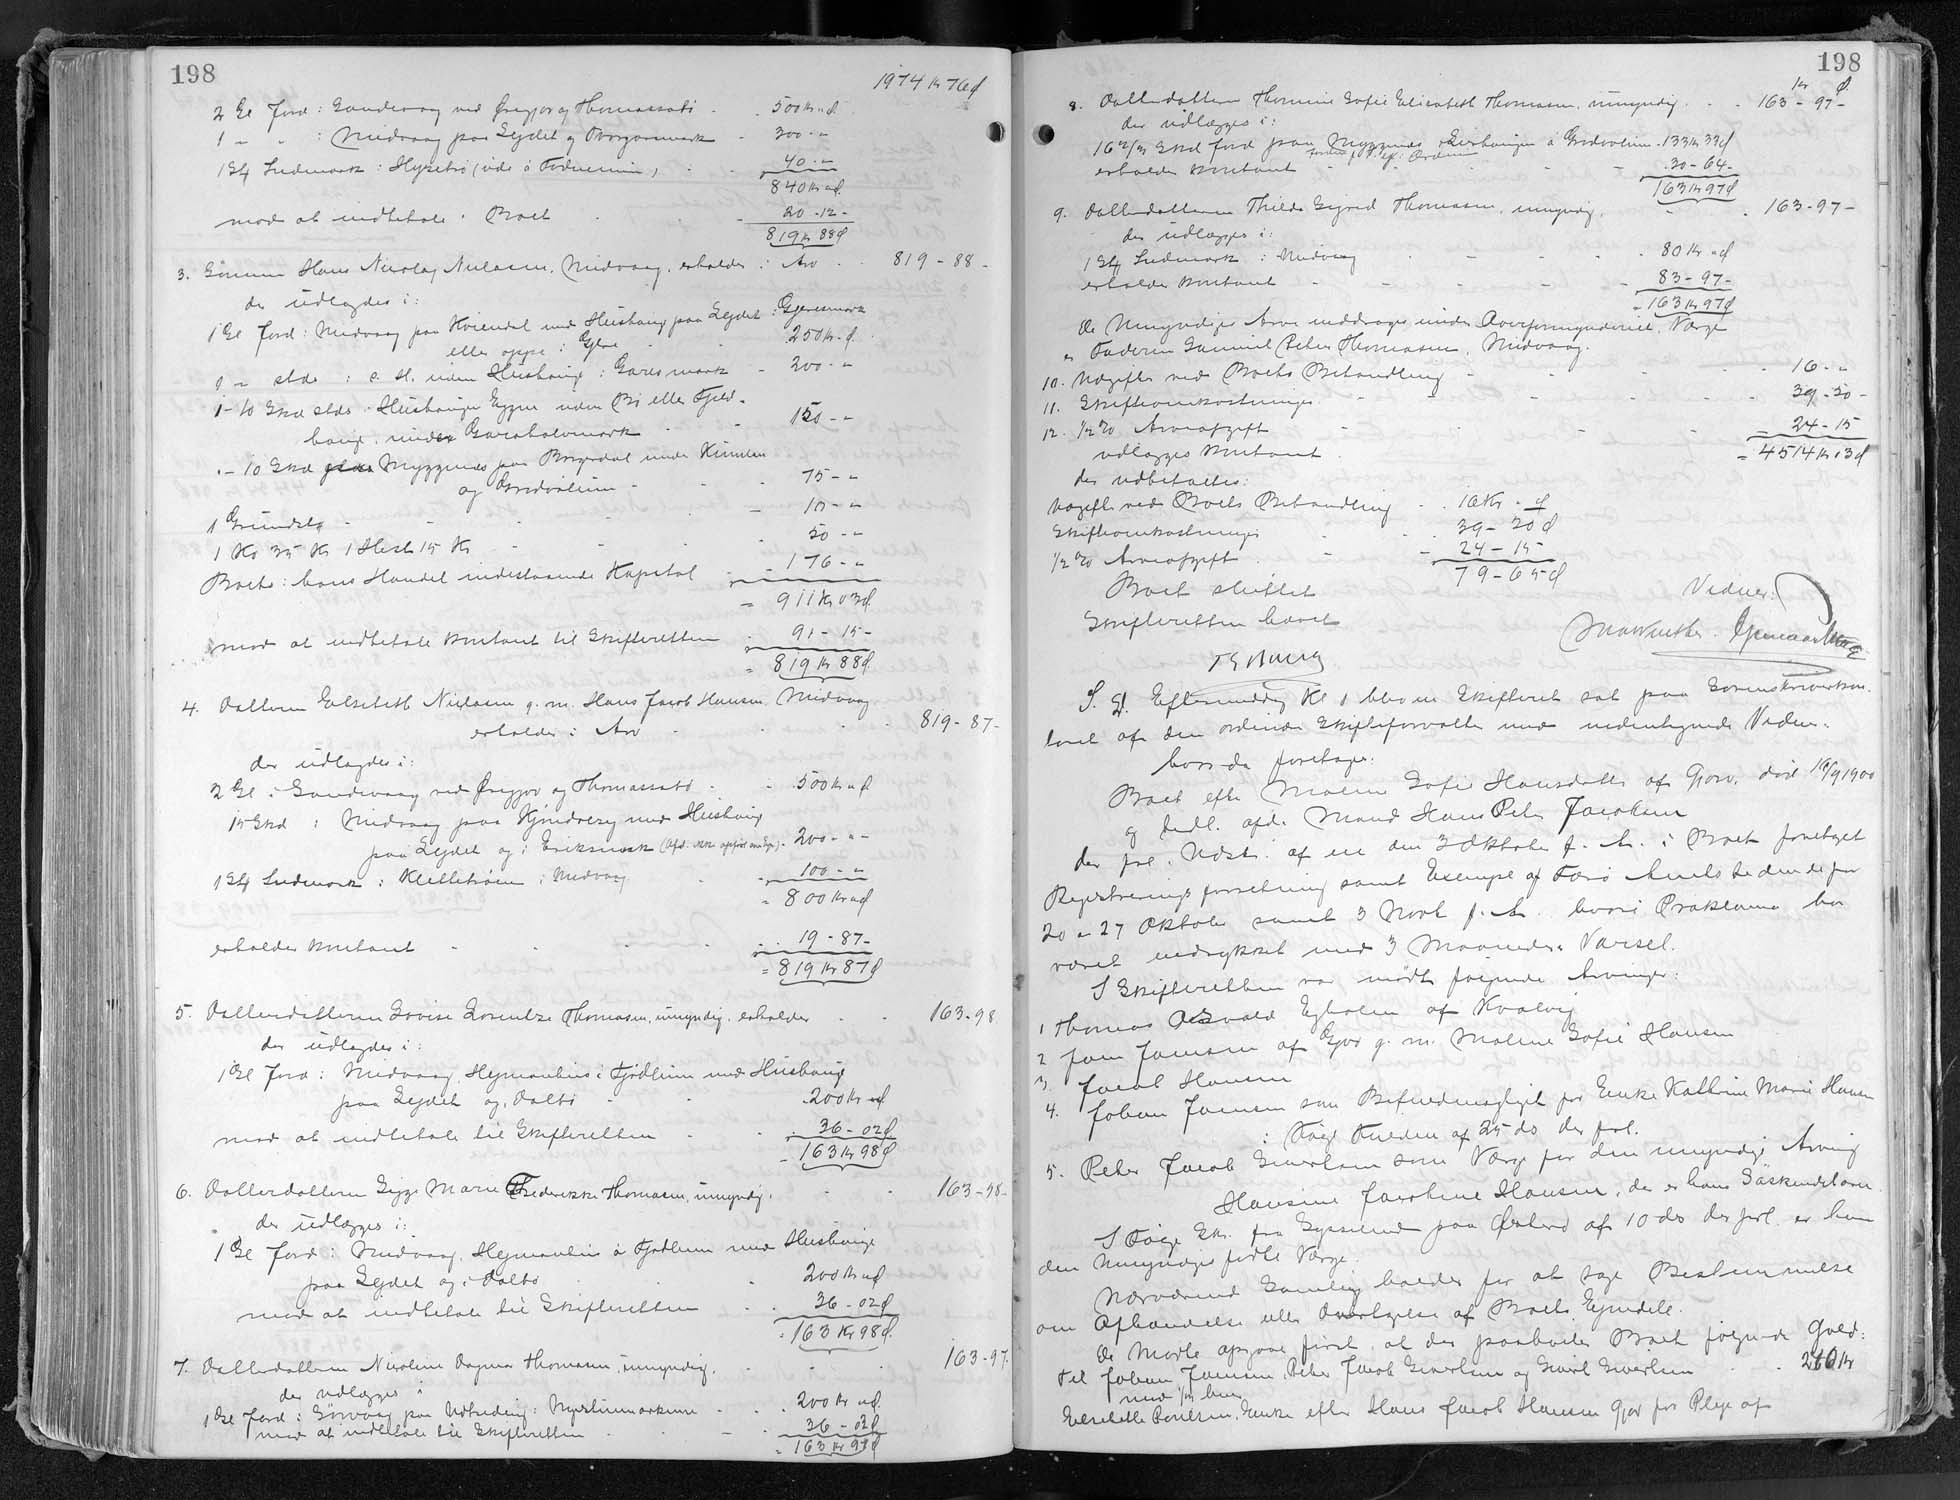 198
1974 Kr 76 Ø
2 Gl Jord: Sandevaag ved Øregjov og Thomassatø - 500 Kr " Ø
1 " " : Midvaag paa Lydet og - 300 - "
1 Stk Indmark: - 40 - "
840 Kr " Ø
mod at indbetale i Boet - 20 - 12 -
819 Kr 88 Ø
3. Sønnen Hans Nicolaj Nielasen, Midvaag, erholder i Arv - 819 - 88 -
der udlægges i:
1 Gl Jord: Midvaag paa Kviendal med Hushauge paa Lydet i Gjeresmark
eller oppe i Gjere - 250 Kr - Ø
1 " stds : s. st. uden Hushauge i Garesmark - 200 - "
1 - 10 Skd stds Hushauge Eggene uden Bø eller Fjeld-
hauge under - 150 - "
" - 10 Skd Myggenæs paa Borgardal under
og - 75 - "
1 Grundstk - 10 - "
1 Ko 35 Kr 1 Hest 15 Kr - 50 - "
Boets i hans Handel indestaaende Kapital - 176 - "
= 911 Kr 03 Ø
mod at indbetale kontant til Skifteretten - 91 - 15 -
= 819 Kr 88 Ø
4. Datteren Elsebeth Nielasen g. m. Hans Jacob Hansen, Midvaag
erholder i Arv - 819 - 87 -
der udlægges i:
2 Gl i Sandevaag ved Øregjov og Thomassatø - 500 Kr " Ø
15 Skd : Midvaag paa med Hushauge
paa Lydet og i Eriksmark - 200 - " -
1 Stk Indmark i Midvaag - 100 - "
= 800 Kr " Ø
erholder kontant - 19 - 87 -
= 819 Kr 87 Ø
5. Datterdatteren Lovise Lorentze Thomasen, umyndig, erholder - 163 - 98
der udlægges i:
1 Gl Jord: Midvaag, Heimanhus i med Hushauge
paa Lydet og i Dalbø - 200 Kr " Ø
mod at indbetale til Skifteretten - 36 - 02 Ø
= 163 Kr 98 Ø
6. Datterdatteren Sigga Marie Frederikke Thomasen, umyndig, - 163 - 98 -
der udlægges i:
1 Gl Jord: Midvaag, Heimanhus i med Hushauge
paa Lydet og i Dalbø - 200 Kr " Ø
mod at indbetale til Skifteretten - 36 - 02 Ø
= 163 Kr 98 Ø
7. Datterdatteren Nicoline Dagmar Thomasen, umyndig, - 163 - 97 -
der udlægges i
1 Gl Jord: Sørvaag paa - 200 Kr " Ø
mod at indbetale til Skifteretten - 36 - 03 Ø
= 163 Kr 97 Ø
198
Kr Ø
8. Datterdatteren Thomine Sofie Elisabeth Thomasen, umyndig - 163 - 97 -
der udlægges i:
Skd Jord paa Myggenæs - 133 Kr 33 Ø
erholder kontant - 30 - 64 -
163 Kr 97 Ø
9. Datterdatteren Thilde Sigrid Thomasen, umyndig, - 163 - 97 -
der udlægges i:
1 Stk Indmark i Midvaag - 80 Kr " Ø
erholder kontant - 83 - 97 -
= 163 Kr 97 Ø
De Umyndiges Arve inddrages under Overformynderiet. Værge
er Faderen Samuel Peter Thomasen, Midvaag.
10. Udgifter ved Boets Behandling - 16 - "
11. Skifteomkostninger - 39 - 50 -
12. ½ % Arveafgift - 24 - 15
udlægges kontant = 4514 Kr 13 Ø
der udbetaltes:
Udgifter ved Boets Behandling - 16 Kr - Ø
Skifteomkostninger - 39 - 50 Ø
½ % Arveafgift - 24 - 15 -
79 - 65 Ø
Boet sluttet
Skifteretten hævet
Vidner:
S. D. Eftermiddag Kl 1 blev en Skifteret sat paa Sorenskriverkon-
toret af den ordinære Skifteforvalter med undertegnede Vidner,
hvor da foretages:
Boet efter Malene Sofie Hansdatter af Gjov, død 16/9 1900
og tidl. afd. Mand Hans Peter Jacobsen
der frl. Udskr. af en den 3 Oktober f. A. i Boet foretaget
Registreringsforretning samt Exempl. af Færø Amts Tidende for
20 - 27 Oktober samt 3 Novb f. A. hvori Proklama har
været indrykket med 3 Maaneders Varsel.
I Skifteretten var mødt følgende Arvinger:
1 Thomas Osvald Egholm af Kvalvig
2 Joen Joensen af Gjov g. m. Malene Sofie Hansen
3. Jacob Hansen
4. Johan Joensen som Befuldmægtiget for Enke Kathrine Marie Hansen
i Følge Fuldm. af 25 ds der frl.
5. Peter Jacob Sivertsen som Værge for den umyndige Arving
Hansine Jacobine Hansen, der er hans Søskendebarn
I Følge Skr. fra Sysselmd paa Østerø af 10 ds der frl. er han
den Umyndiges fødte Værge.
Nærværende Samling holdes for at tage Bestemmelse
om Afhændelse eller Overtagelse af Boets Ejendele.
De Mødte opgave først, at der paahviler Boet følgende Gæld:
Til Johan Joensen, Peter Jacob Sivertsen og Sivert Sivertsen - 260 Kr
med ½ hver
Elsebeth Poulsen, Enke efter Hans Jacob Hansen Gjov for Pleje af